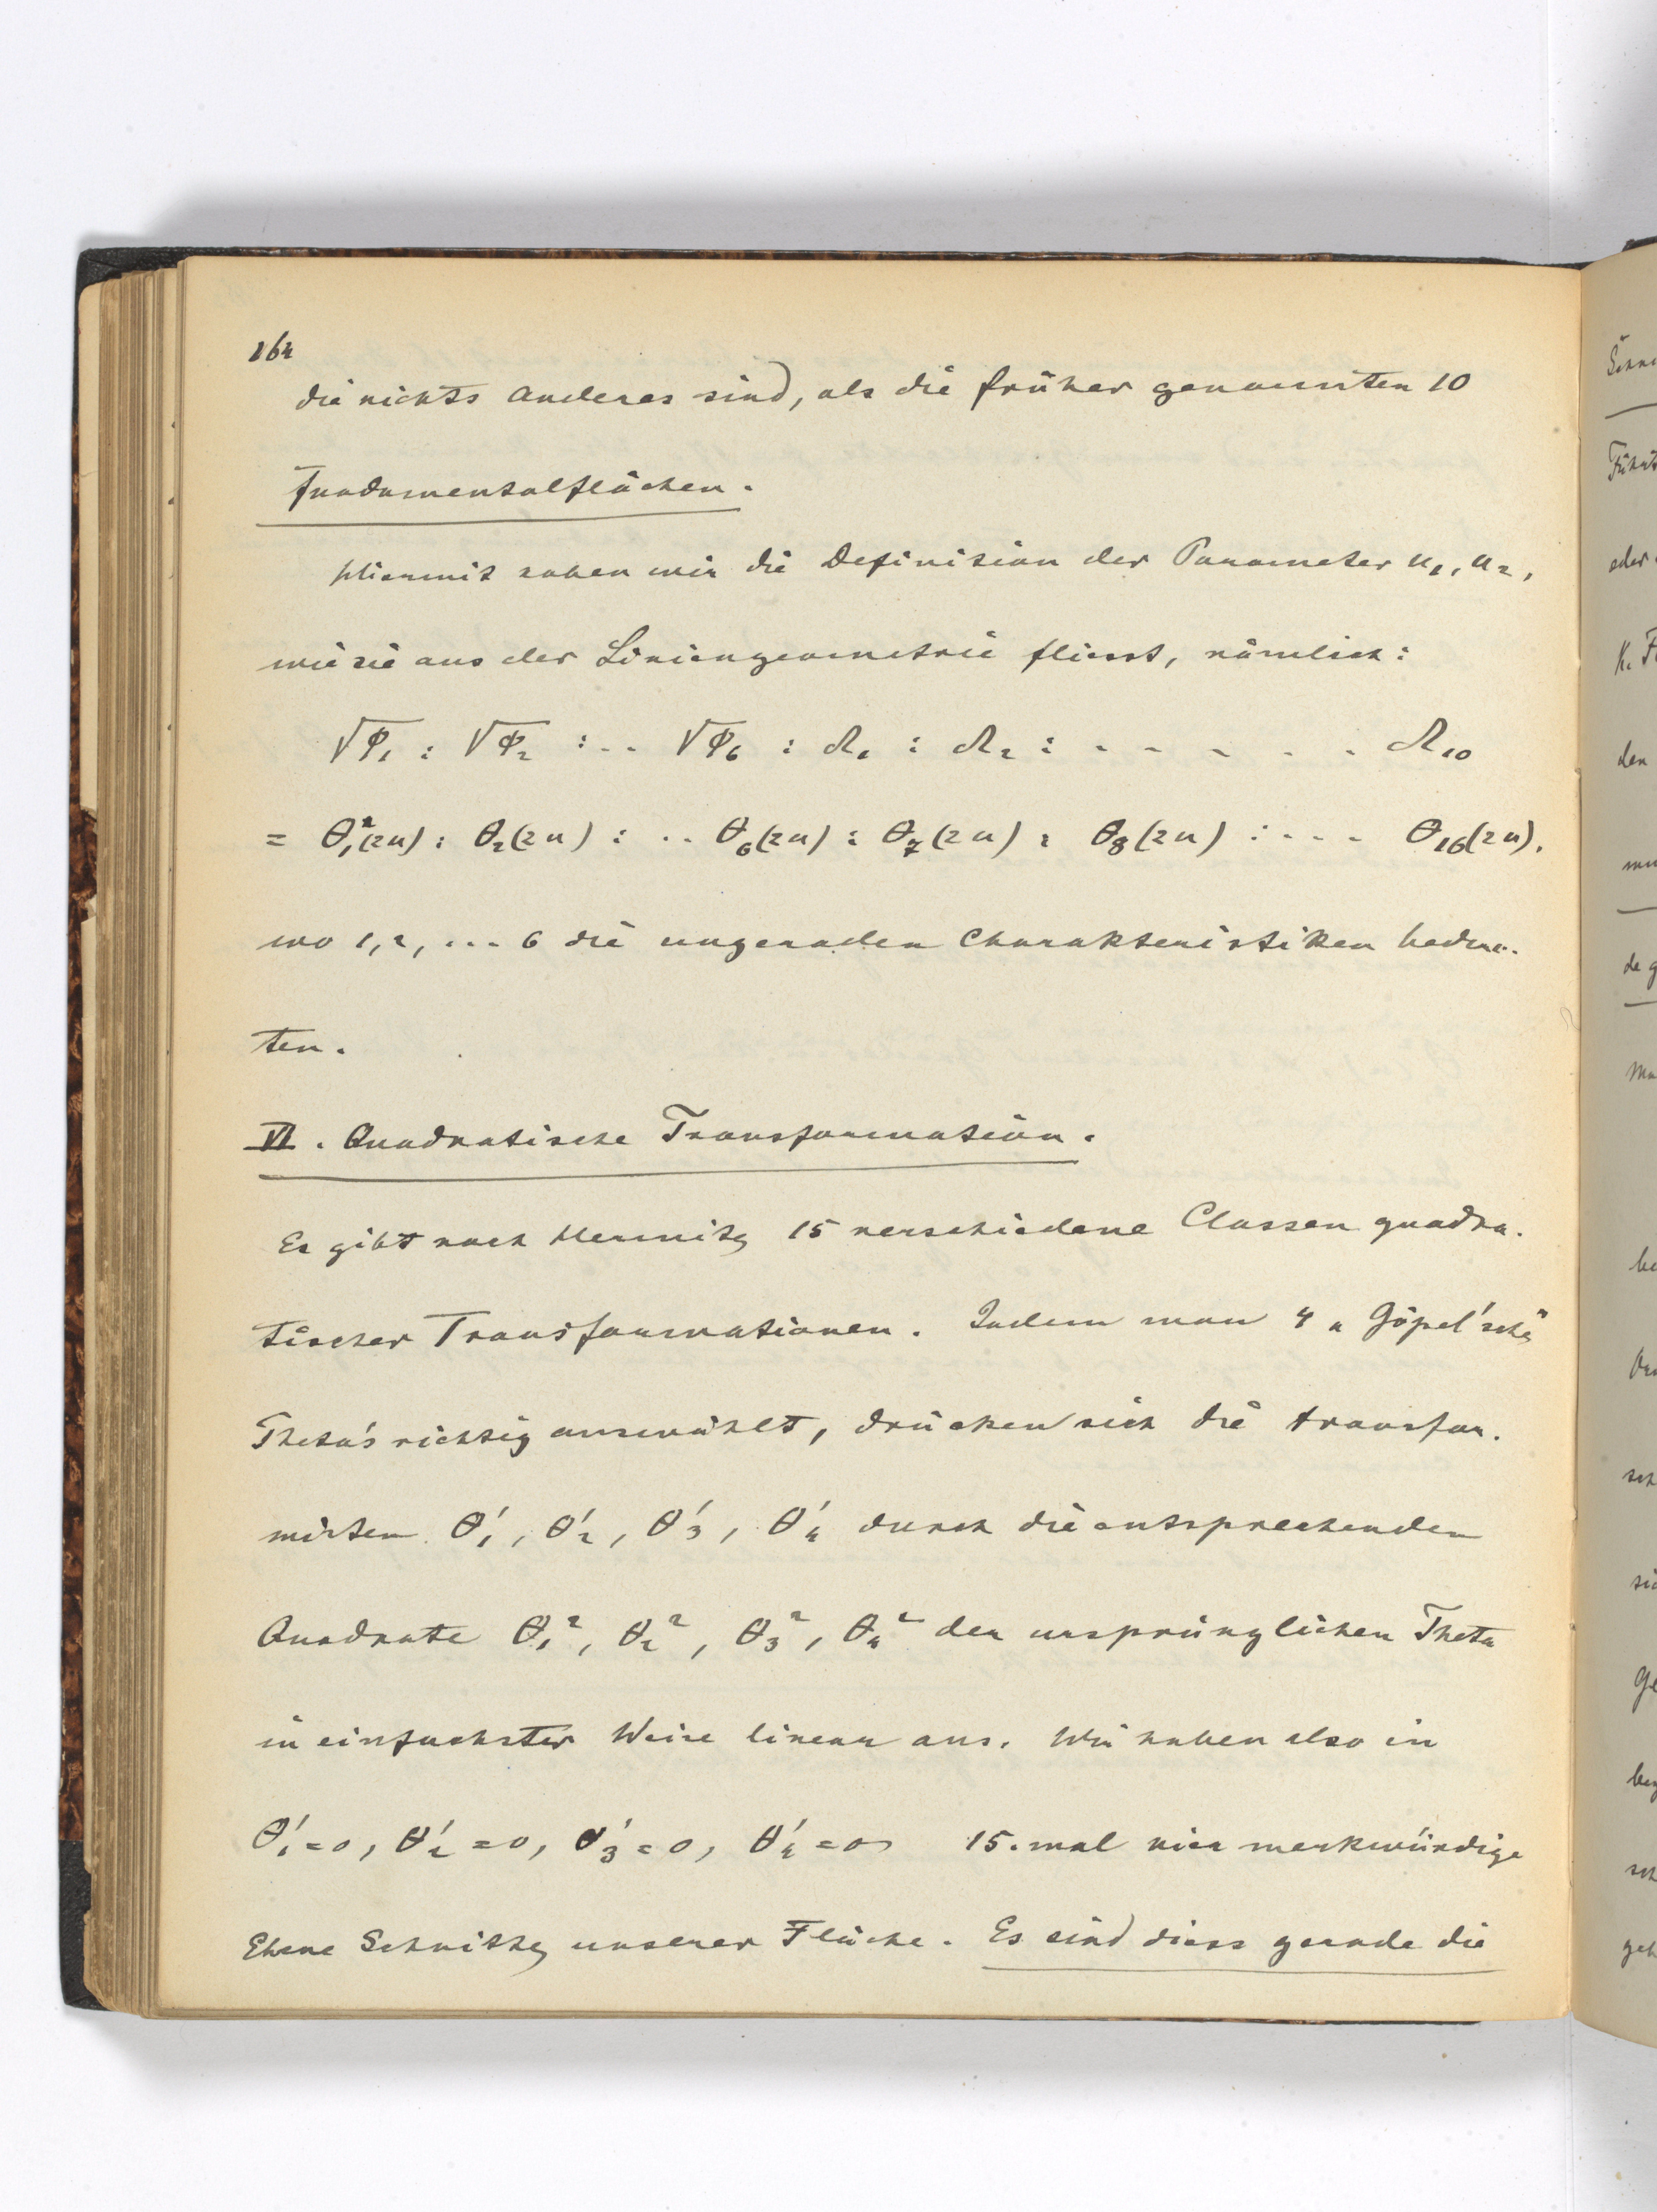 164
die nichts Anderes sind, als die früher genannten 10
Fundamentalflächen.
Hiermit haben wir die Definition der Parameter u₁, u₂,
wie sie aus der Liniengeometrie fliesst, nämlich:
√φ₁ : √φ₂ : .. √φ₆ : Ω₁ : Ω₂ : . . . . . . Ω₁₀
= θ₁²(2u) : θ₂(2u) : .. θ₆(2u) : θ₇(2u) : θ₈(2u) : .... θ₁₆(2u).
wo 1, 2, ... 6 die ungeraden Charakteristiken bedeu-
ten.
VI. Quadratische Transformation.
Es gibt nach Hermite 15 verschiedene Classen quadra-
tischer Transformationen. Indem man 4 „Göpel'sche"
Theta's richtig auswählt, drücken sich die transfor-
mirten θ₁', θ₂', θ₃', θ₄' durch die entsprechenden
Quadrate θ₁², θ₂², θ₃², θ₄² der ursprünglichen Theta
in einfachster Weise linear aus. Wir haben also in
θ₁'=0, θ₂'=0, θ₃'=0, θ₄'=0 15. mal vier merkwürdige
Ebene Schnitte unserer Fläche. Es sind diess gerade die
Führt
oder
K. F
den
de g